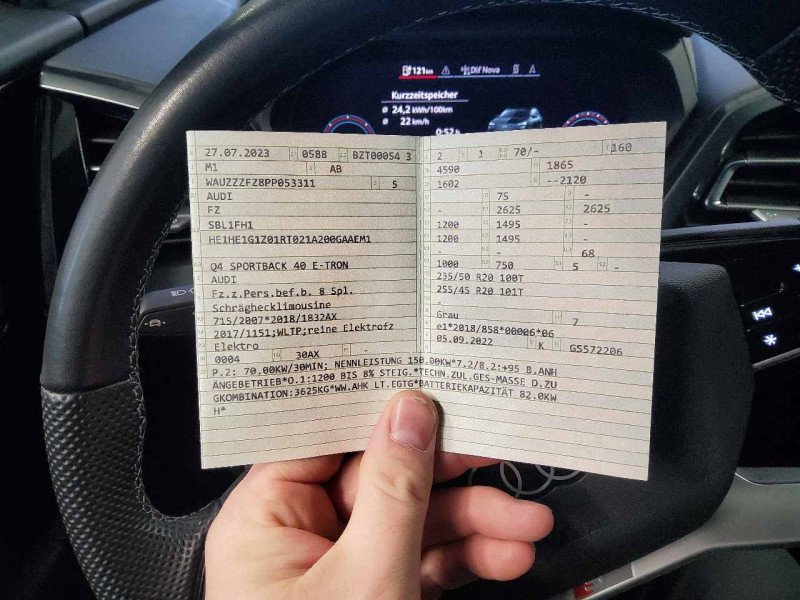 121 km
Dlf Nova
Kurzzeitspeicher
ø 24,2 kWh/100km
ø 22 km/h
0:52 h
27.07.2023 0588 BZT00054 3
M1 AB
WAUZZZFZ8PP053311 5
AUDI
FZ
SBL1FH1
HE1HE1G1Z01RT021A200GAAEM1
Q4 SPORTBACK 40 E-TRON
AUDI
Fz.z.Pers.bef.b. 8 Spl.
Schräghecklimousine
715/2007*2018/1832AX
2017/1151;WLTP;reine Elektrofz
Elektro
0004 30AX -
2 1 70/- 160
4590 1865
1602 --2120
75 -
- 2625 2625
1200 1495 -
1200 1495 -
- 68
1000 750 5 -
235/50 R20 100T
255/45 R20 101T
-
Grau 7
e1*2018/858*00006*06
05.09.2022 K GS572206
P.2: 70.00KW/30MIN; NENNLEISTUNG 150.00KW*7.2/8.2:+95 B.ANH
ÄNGEBETRIEB*O.1:1200 BIS 8% STEIG.*TECHN.ZUL.GES-MASSE D.ZU
GKOMBINATION:3625KG*WW.AHK LT.EGTG*BATTERIEKAPAZITÄT 82.0KW
H*